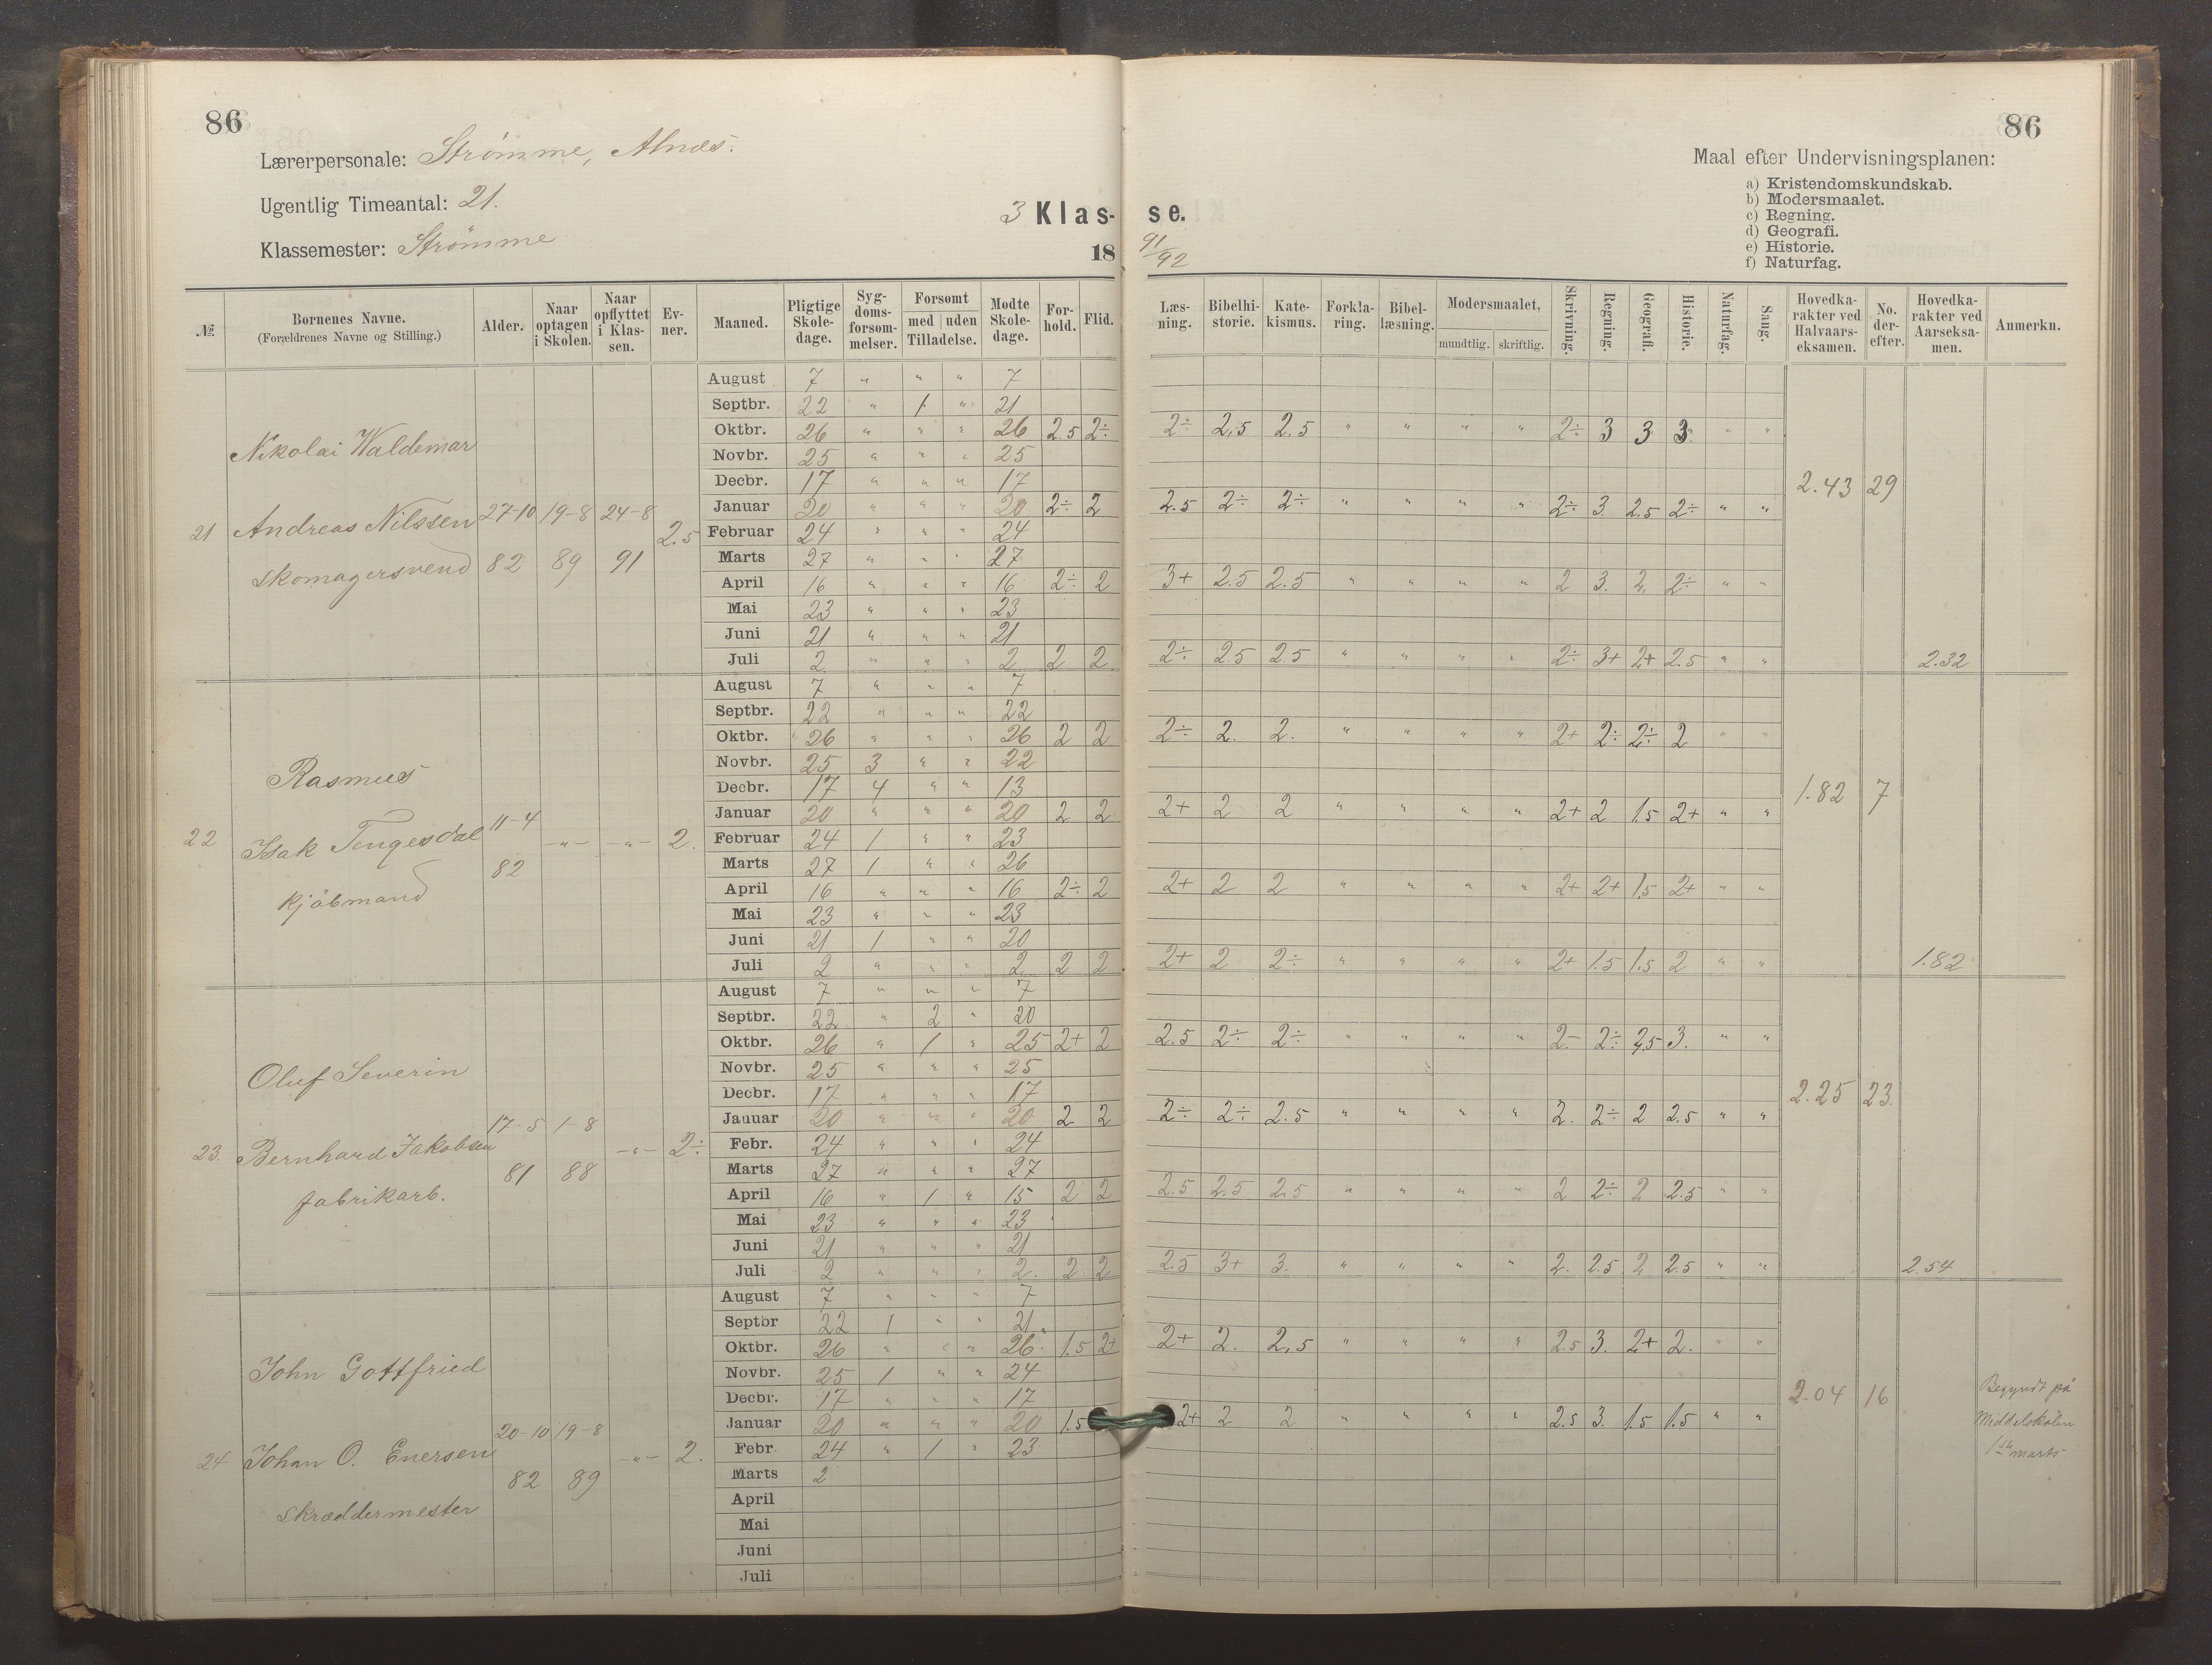 86
86
Lærerpersonale: Strømme, Alnæs.
Ugentlig Timeantal: 21.
Klassemester: Strømme
3 Klas- se.
18 91/92
Maal efter Undervisningsplanen:
a) Kristendomskundskab.
b) Modersmaalet.
c) Regning.
d) Geografi.
e) Historie.
f) Naturfag.
№ Børnenes Navne. (Forældrenes Navne og Stilling.) Alder. Naar optagen i Skolen. Naar opflyttet i Klassen. Evner. Maaned. Pligtige Skoledage. Sygdomsforsømmelser. Forsømt med uden Tilladelse. Mødte Skoledage. Forhold. Flid. Læsning. Bibelhistorie. Katekismus. Forklaring. Bibellæsning. Modersmaalet, mundtlig. skriftlig. Skrivning. Regning. Geografi. Historie. Naturfag. Sang. Hovedkarakter ved Halvaarseksamen. No. derefter. Hovedkarakter ved Aarseksamen. Anmerkn.
21 Nikolai Waldemar
Andreas Nilssen
skomagersvend
27-10 82 19-8 89 24-8 91 2.5
August 7 " " " 7
Septbr. 22 " 1 " 21
Oktbr. 26 " " " 26 2.5 2÷ 2÷ 2,5 2.5 " " " " 2÷ 3 3 3. " "
Novbr. 25 " " " 25
Decbr. 17 " " " 17
Januar 20 " " " 20 2÷ 2 2.5 2÷ 2÷ " " " " 2÷ 3. 2.5 2÷ " "
Februar 24 " " " 24
Marts 27 " " " 27
April 16 " " " 16 2÷ 2 3+ 2.5 2.5 " " " " 2 3. 2. 2÷ " "
Mai 23 " " " 23
Juni 21 " " " 21
Juli 2 " " " 2 2 2 2÷ 2.5 2.5 " " " " 2÷ 3+ 2+ 2.5 " "
2.43 29 2.32
22 Rasmus
Isak Tengesdal
kjøbmand
11-4 82 -"- -"- 2.
August 7 " " " 7
Septbr. 22 " " " 22
Oktbr. 26 " " " 26 2 2 2÷ 2. 2. " " " " 2+ 2÷ 2÷ 2 " "
Novbr. 25 3 " " 22
Decbr. 17 4 " " 13
Januar 20 " " " 20 2 2 2+ 2 2 " " " " 2+ 2 1.5 2+ " "
Februar 24 1 " " 23
Marts 27 1 " " 26
April 16 " " " 16 2÷ 2 2+ 2 2 " " " " 2+ 2+ 1.5 2+ " "
Mai 23 " " " 23
Juni 21 1 " " 20
Juli 2 " " " 2 2 2 2+ 2 2÷ " " " " 2+ 1.5 1.5 2 " "
1.82 7 1.82
23. Oluf Severin
Bernhard Jakobsen
fabrikarb.
17-5 81 1-8 88 -"- 2÷
August 7 " " " 7
Septbr. 22 " 2 " 20
Oktbr. 26 " 1 " 25 2+ 2 2.5 2÷ 2÷ " " " " 2- 2÷ 2,5 3. " "
Novbr. 25 " " " 25
Decbr. 17 " " " 17
Januar 20 " " " 20 2 2 2÷ 2÷ 2.5 " " " " 2. 2÷ 2 2.5 " "
Febr. 24 " " " 24
Marts 27 " " " 27
April 16 " 1 " 15 2 2 2.5 2.5 2.5 " " " " 2 2÷ 2 2.5 " "
Mai 23 " " " 23
Juni 21 " " " 21
Juli 2 " " " 2. 2 2 2.5 3+ 3. " " " " 2. 2.5 2 2.5 " "
2.25 23. 2.54
24 John Gottfried
Johan O. Enersen
skræddermester
20-10 82 19-8 89 -"- 2.
August 7 " " " 7
Septbr 22 1 " " 21
Oktbr. 26 " " " 26 1.5 2+ 2+ 2. 2,5 " " " " 2.5 3. 2+ 2. " "
Novbr. 25 1 " " 24
Decbr. 17 " " " 17
Januar 20 " " " 20 1.5 2+ 2 2 " " " " 2.5 3. 1.5 1.5 " "
Febr 24 " 1 " 23
Marts 2
April
Mai
Juni
Juli
2.04 16
Begyndt på
Middelskolen
1ste marts